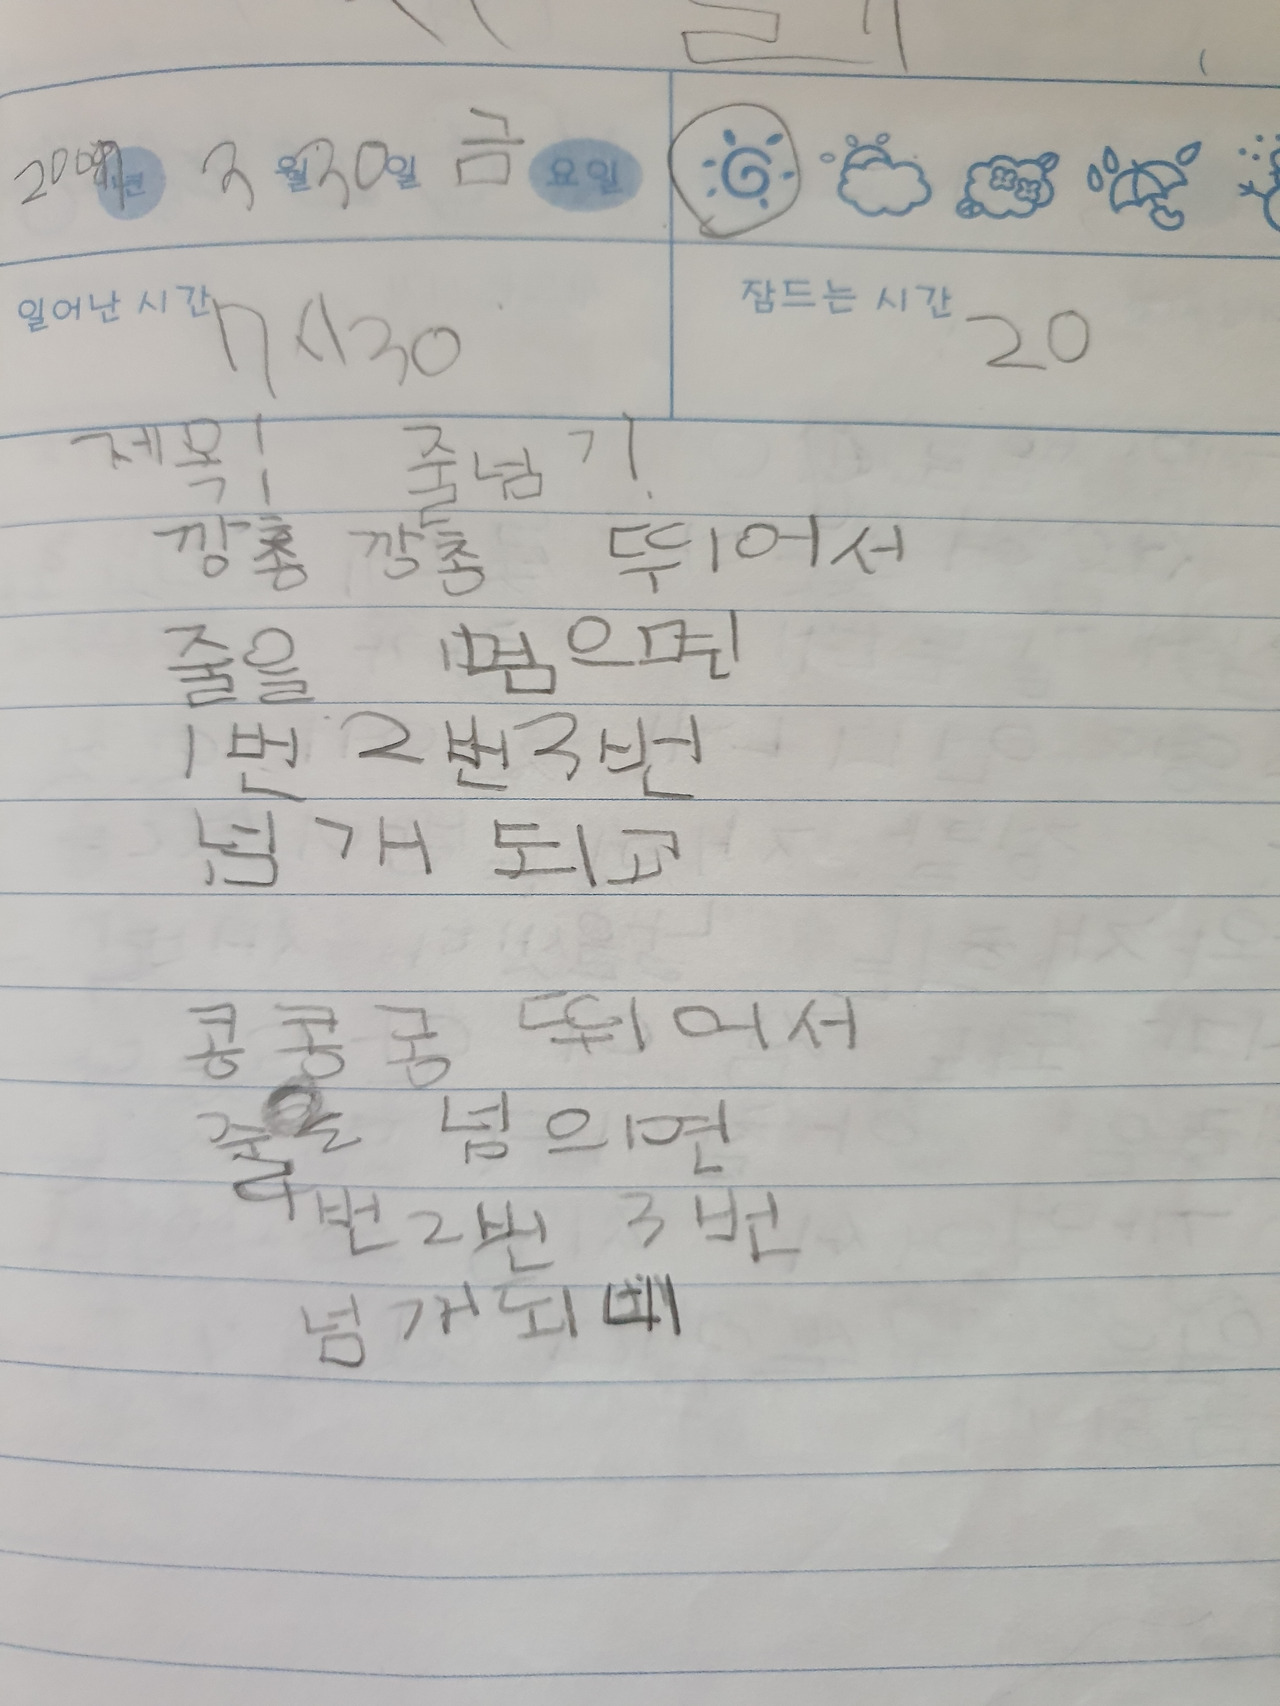 2007년 3월 30일 금요일
일어난 시간 7시30
잠드는 시간 20
제목! 줄넘기!
깡총 깡총 뛰어서
줄을 넘으면
1번 2번 3번
넘개 되고
콩콩콩 뛰어서
줄을 넘의면
1번 2번 3번
넘개되